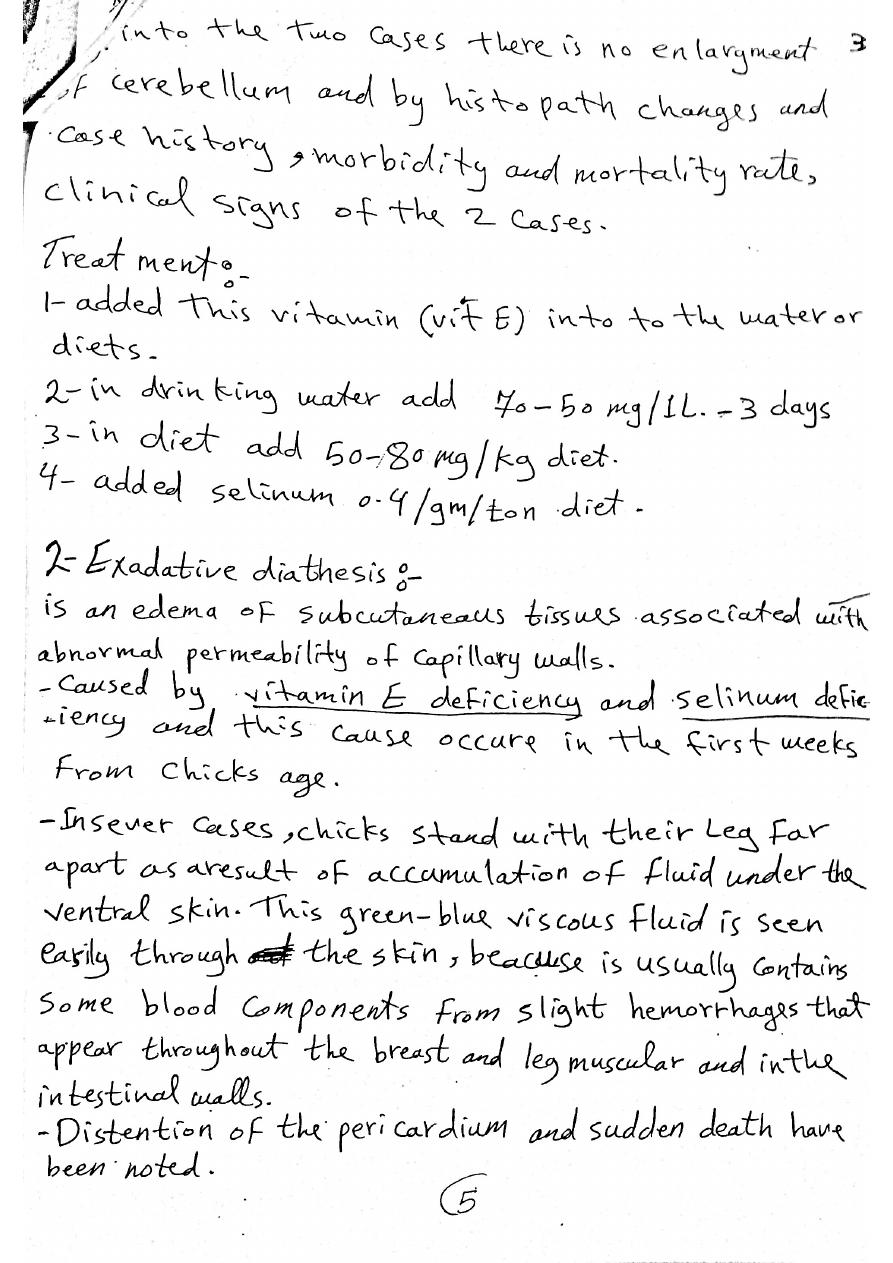 into the Two Cases there is no enlargment 3
of cerebellum and by histopath changes and
Case history, morbidity and mortality rate,
clinical signs of the 2 Cases.
Treatment:-
1- added this vitamin (vit E) into to the water or
diets.
2- in drinking water add 70-50 mg/1L. - 3 days
3- in diet add 50-80 mg/kg diet.
4- added selinum 0.4/gm/ton diet.
2- Exadative diathesis:-
is an edema of subcutaneaus tissues associated with
abnormal permeability of Capillary walls.
- Caused by vitamin E deficiency and selinum defic
-iency and this cause occure in the first weeks
From Chicks age.
- Insever cases, chicks stand with their Leg far
apart as aresult of accumulation of fluid under the
ventral skin. This green-blue viscous fluid is seen
easily through the skin, beacuse is usually Contains
Some blood Components from slight hemorrhages that
appear throughout the breast and leg muscular and inthe
intestinal walls.
- Distention of the pericardium and sudden death have
been noted.
5